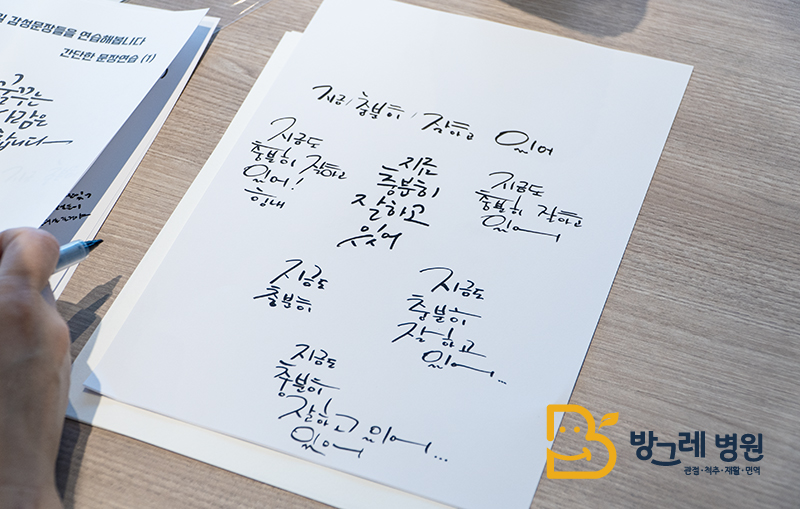 감성문장들을 연습해봅니다
간단한 문장연습 (1)
꿈꾸는
사람은
지금 / 충분히 / 잘하고 있어
지금도
충분히 잘하고
있어!
힘내
지금
충분히
잘하고
있어
지금도
충분히 잘하고
있어
지금도
충분히
지금도
충분히
잘하고
있어...
지금도
충분히
잘하고 있어...
있어
방그레 병원
관절·척추·재활·면역